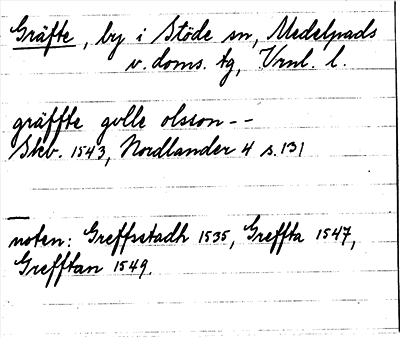 Gräfte, by i Stöde sn, Medelpads
v. doms. tg, Vrnl. l.
gräffte golle olsson--
Skb. 1543, Nordlander 4 s. 131
noten: Greffsstadh 1535, Greffta 1547,
Grefftan 1549.